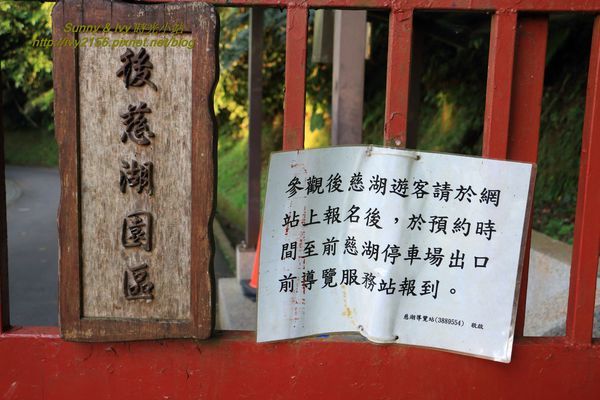 Sunny & Ivy 時光小站
http://ivy2156.pixnet.net/blog
後慈湖園區
參觀後慈湖遊客請於網
站上報名後，於預約時
間至前慈湖停車場出口
前導覽服務站報到。
慈湖導覽站(3889554) 敬啟